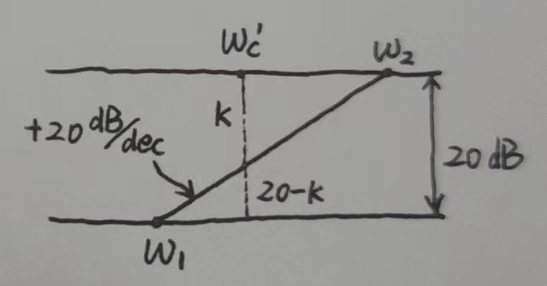 Wc'
W2
K
+20 dB/dec
20 dB
20-K
W1